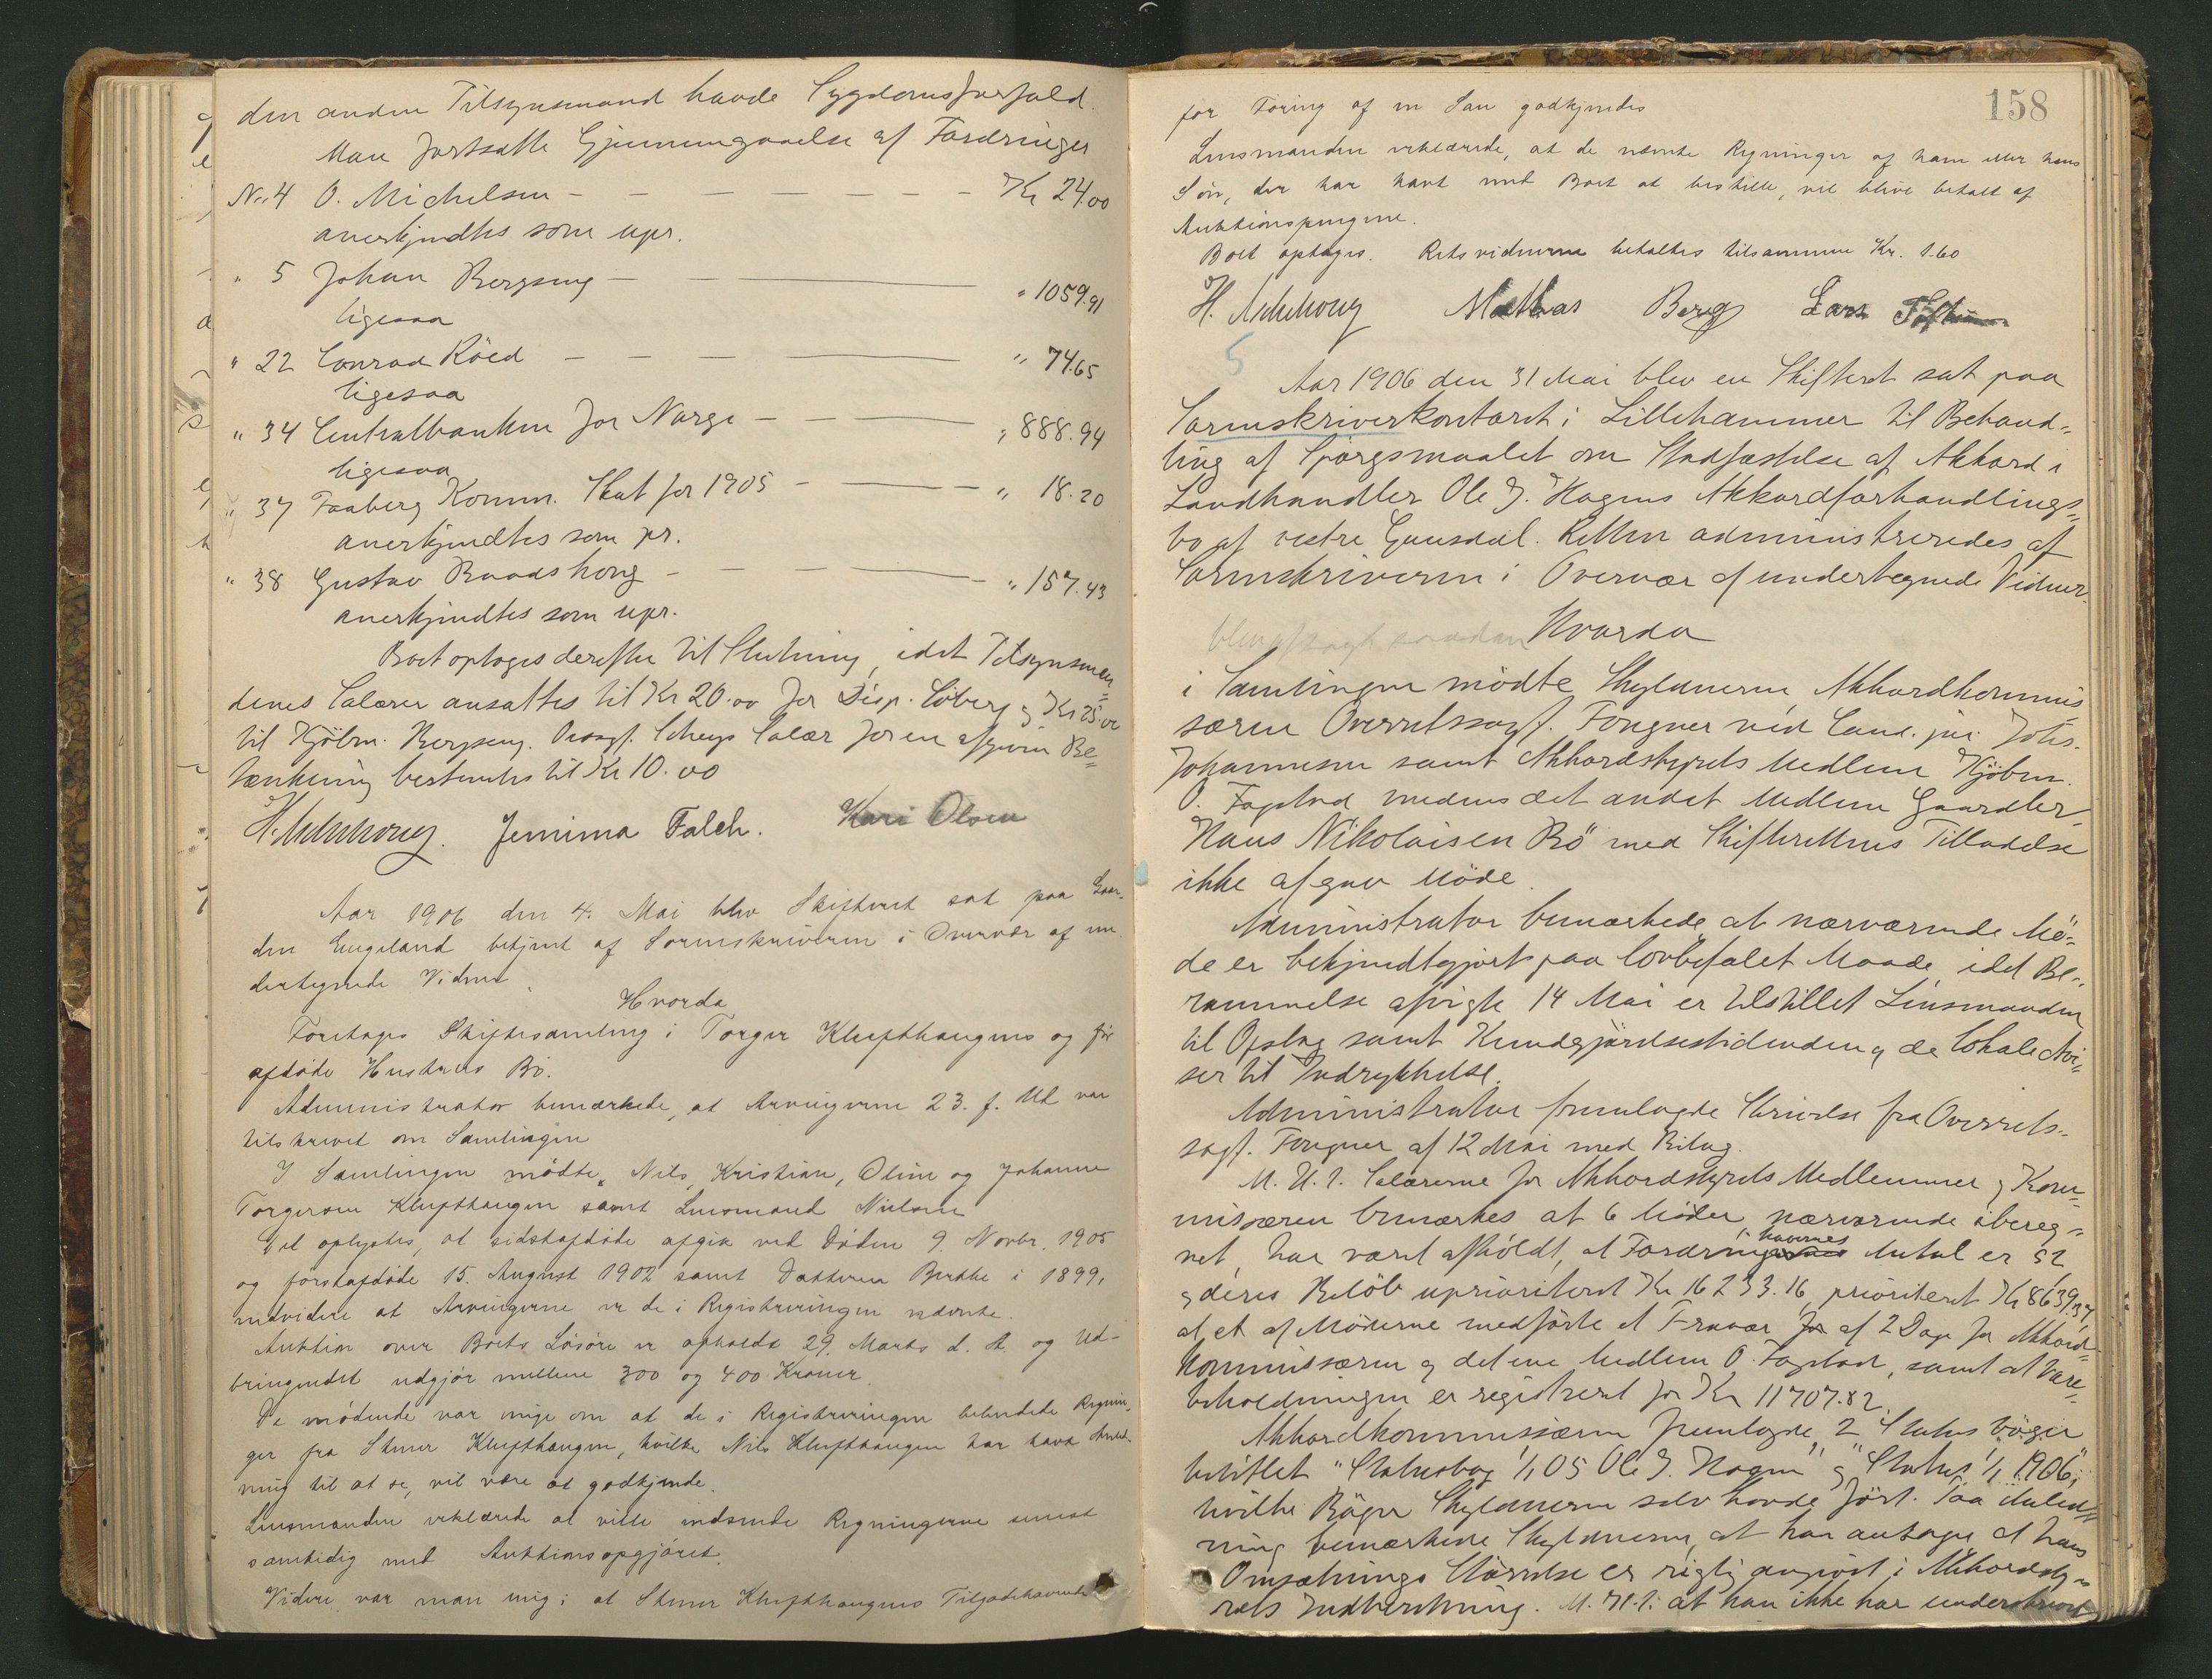 den anden Tilsynsmand havde Sygdomsforfald.
Man fortsatte Gjennemgaaelse af Fordringer
No. 4 O. Michelsen - - - - - - - Kr 24.00
anerkjendtes som upr.
" 5 Johan Bergseng - - - " 1059.91
ligesaa
" 22 Conrad Röed - - - - " 74.65
ligesaa
" 34 Centralbanken for Norge - - - " 888.94
ligesaa
" 37 Faaberg Komm. Skat for 1905 - - - " 18.20
anerkjendtes som pr.
" 38 Gustav Braadshong - - - - " 157.43
anerkjendtes som upr.
Boet optoges derefter til Slutning, idet Tilsynsmæn=
denes Salærer ansattes til Kr 20.00 for Disp. Löberg og Kr 25.00
til Kjöbm. Bergseng. Ovrsgf. Salær for en afgiven Be=
tænkning bestemtes til Kr 10.00
H. Aschehoug. Jemima Falch. Kari Olsen
Aar 1906 den 4. Mai blev Skifteret sat paa Gaar-
den Engeland betjent af Sorenskriveren i Overvær af un-
dertegnede Vidner.
Hvorda
Foretoges Skiftesamling i Torger Klufthaugens og før
afdøde Hustrues Bo.
Administrator bemærkede, at Arvingerne 23. f. Md var
tilskrevet om Samlingen
I Samlingen mødte, Nils, Kristian, Oline og Johanne
Torgersen Klufthaugen samt Lensmand Nielsen
Det oplystes, at sidstafdøde afgik ved Døden 9. Novbr. 1905
og førstafdøde 15. August 1902 samt Datteren Berthe i 1899,
endvidere at Arvingerne er de i Registreringen nævnte.
Auktion over Boets Løsøre er afholdt 29. Marts d. A. og Ud-
bringendet udgjør mellem 300 og 400 Kroner.
De mødende var enige om at de i Registreringen betendte Regnin-
ger fra Stener Klufthaugen, hvilke Nils Klufthaugen har havt Anled-
ning til at se, vil være at godkjende.
Lensmanden erklærede at ville indsende Regningerne senest
samtidig med Auktionsopgjøret.
Videre var man enig i at Stener Klufthaugens Tilgodehavende
158
for Foring af en Sau godkjendes
Lensmanden erklærede, at de nævnte Regninger af ham eller hans
Søn, der har havt med Boet at bestille, vil blive betalt af
Auktionspengene.
Boet optages. Retsvidnerne betaltes tilsammen Kr. 1.60
H. Aschehoug Mathias Berg Lars
5
Aar 1906 den 31 Mai blev en Skifteret sat paa
Sorenskriverkontoret i Lillehammer til Behand=
ling af Spörgsmaalet om Stadfæstelse af Akkord i
Landhandler Ole J. Hagens Akkordforhandlings=
bo af vestre Gausdal. Retten administreredes af
Sorenskriveren i Overvær af undertegnede Vidner.
Hvorda
i Samlingen mödte Skyldneren, Akkordkommis
særen Overretssagf. Fougner ved Cand. jur. Johs.
Johannesen samt Akkordstyrets Medlem Kjöbm.
O. Fagstad medens det andet Medlem Gaardbr.
Hans Nikolaisen Bö med Skifterettens Tilladelse
ikke afgav Möde.
Administrator bemærkede, at nærværende Mö=
de er bekjendtgjort paa lovbefalet Maade, idet Be=
rammelse afvigte 14 Mai er tilstillet Lensmanden
til Opslag samt Kundgjörelsestidenden og de lokale Avi=
ser til Indrykkelse.
Administrator fremlagde Skrivelse fra Overrets-
sagf. Fougner af 12 Mai med Bilag.
M. H. t. Salærerne for Akkordstyrets Medlemmer og Kom=
missæren bemærkes at 6 Möder, nærværende ibereg=
net, har været afholdt, at Fordringshavernes Antal er 52
og deres Belöb uprioriteret Kr 16233.16, prioriteret Kr 8639.37,
at et af Möderne medförte et Fravær af 2 Dage for Akkord=
kommissæren og det ene Medlem O. Fagstad, samt at Vare=
beholdningen er registreret for Kr 11707.82.
Akkordkommissæren fremlagde 2 Statusböger
betitlet "Statusbog 1/1 05 Ole J. Hagen" og "Status 1/1 1906",
hvilke Böger Skyldneren selv havde fört. Paa Anled=
ning bemærkede Skyldneren, at han antager at hans
Omsætnings Störrelse er rigtig angivet i Akkordsty=
rets Indberetning. M. H. t. at han ikke har underskrevet